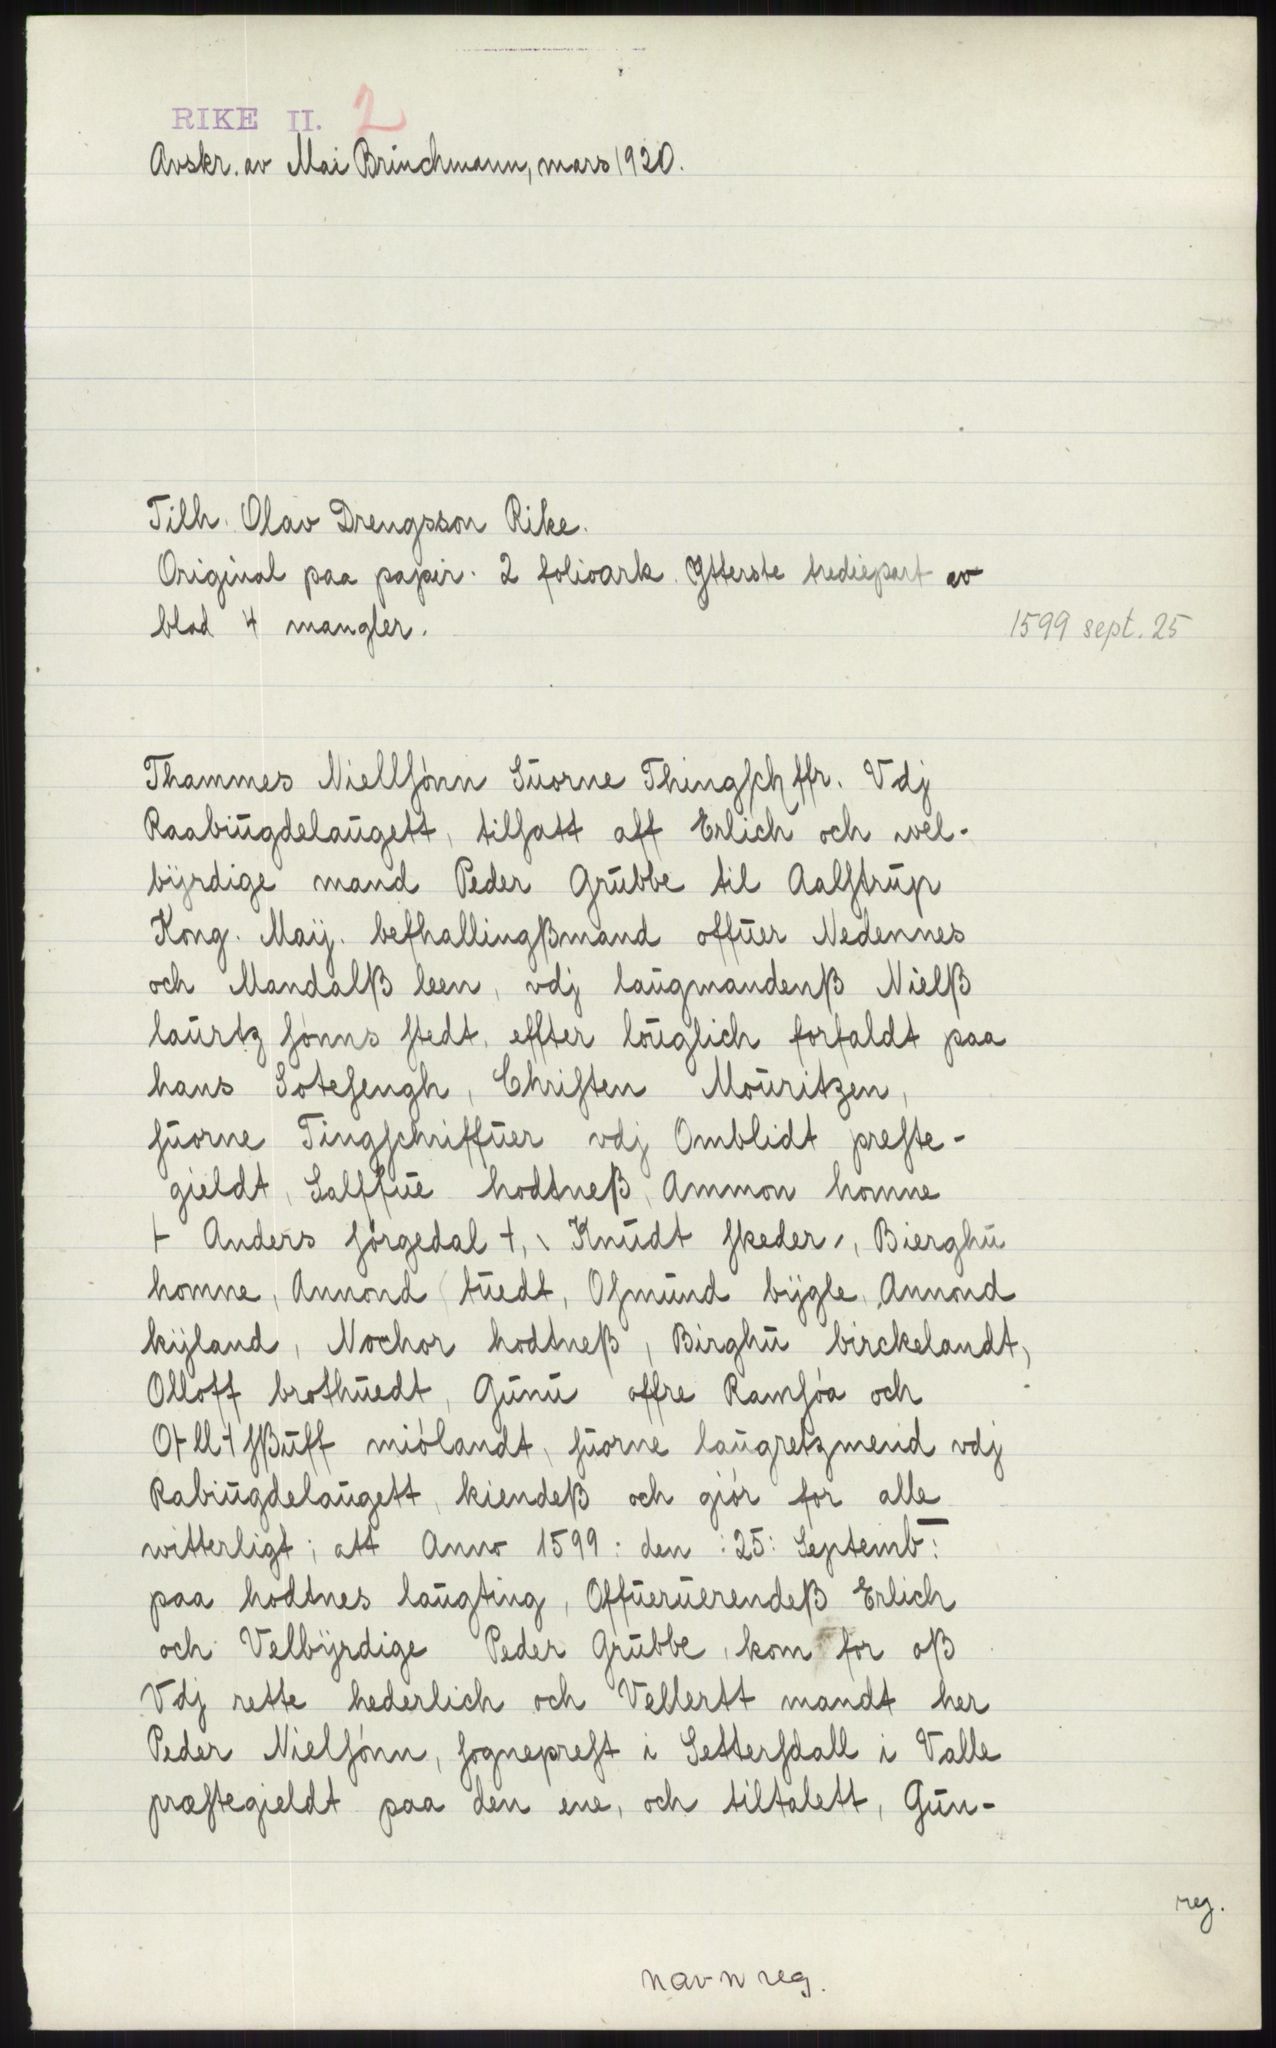 RIKE II. 2
Avskr. av Mai Brinchmann, mars 1920.
Tilh. Olav Drengsson Rike.
Original paa papir. 2 folioark. Ytterste trediepart av
blad 4 mangler.
1599 sept. 25
Thammes Niellſónn Suorne Thingſchffr. Vdj
Raabiugdelaugett, tilſatt aff Erlich och wel-
bÿrdige mand Peder Grubbe til Aalſtrup
Kong. Maij. befhallingßmand offuer Nedennes
och Mandalß leen, vdj laugmandenß Nielß
laurtz ſónns ſtedt, effter louglich forfaldt paa
hans Soteſengh, Chriſten Mouritzen,
ſuorne Tingſchriffuer vdj Omblidt preſte-
gieldt, Salffue hodtneß, Ammon homne
+ Anders ſórgedal +, \ Knudt ſkeder /, Bierghu
homne, Annond tuedt, Oſmund bÿgle, Annond
kÿland, Nochor hodtneß, Birghu birckelandt,
Olloff brothuedt, Gunu offre Ramſóa och
O+ll+ſßuff miólandt, ſuorne laugretzmend vdj
Rabiugdelaugett, kiendeß och giór for alle
witterligt; att Anno 1599: den :25: Septemb:
paa hodtnes laugting, Offueruerendeß Erlich
och Velbÿrdige Peder Grubbe, kom for oß
Vdj rette hederlich och Vellertt mandt her
Peder Nielſónn, ſognepreſt i Setterſdall i Valle
præſtegieldt paa den ene, och tiltalett, Gun-
reg.
navnreg.